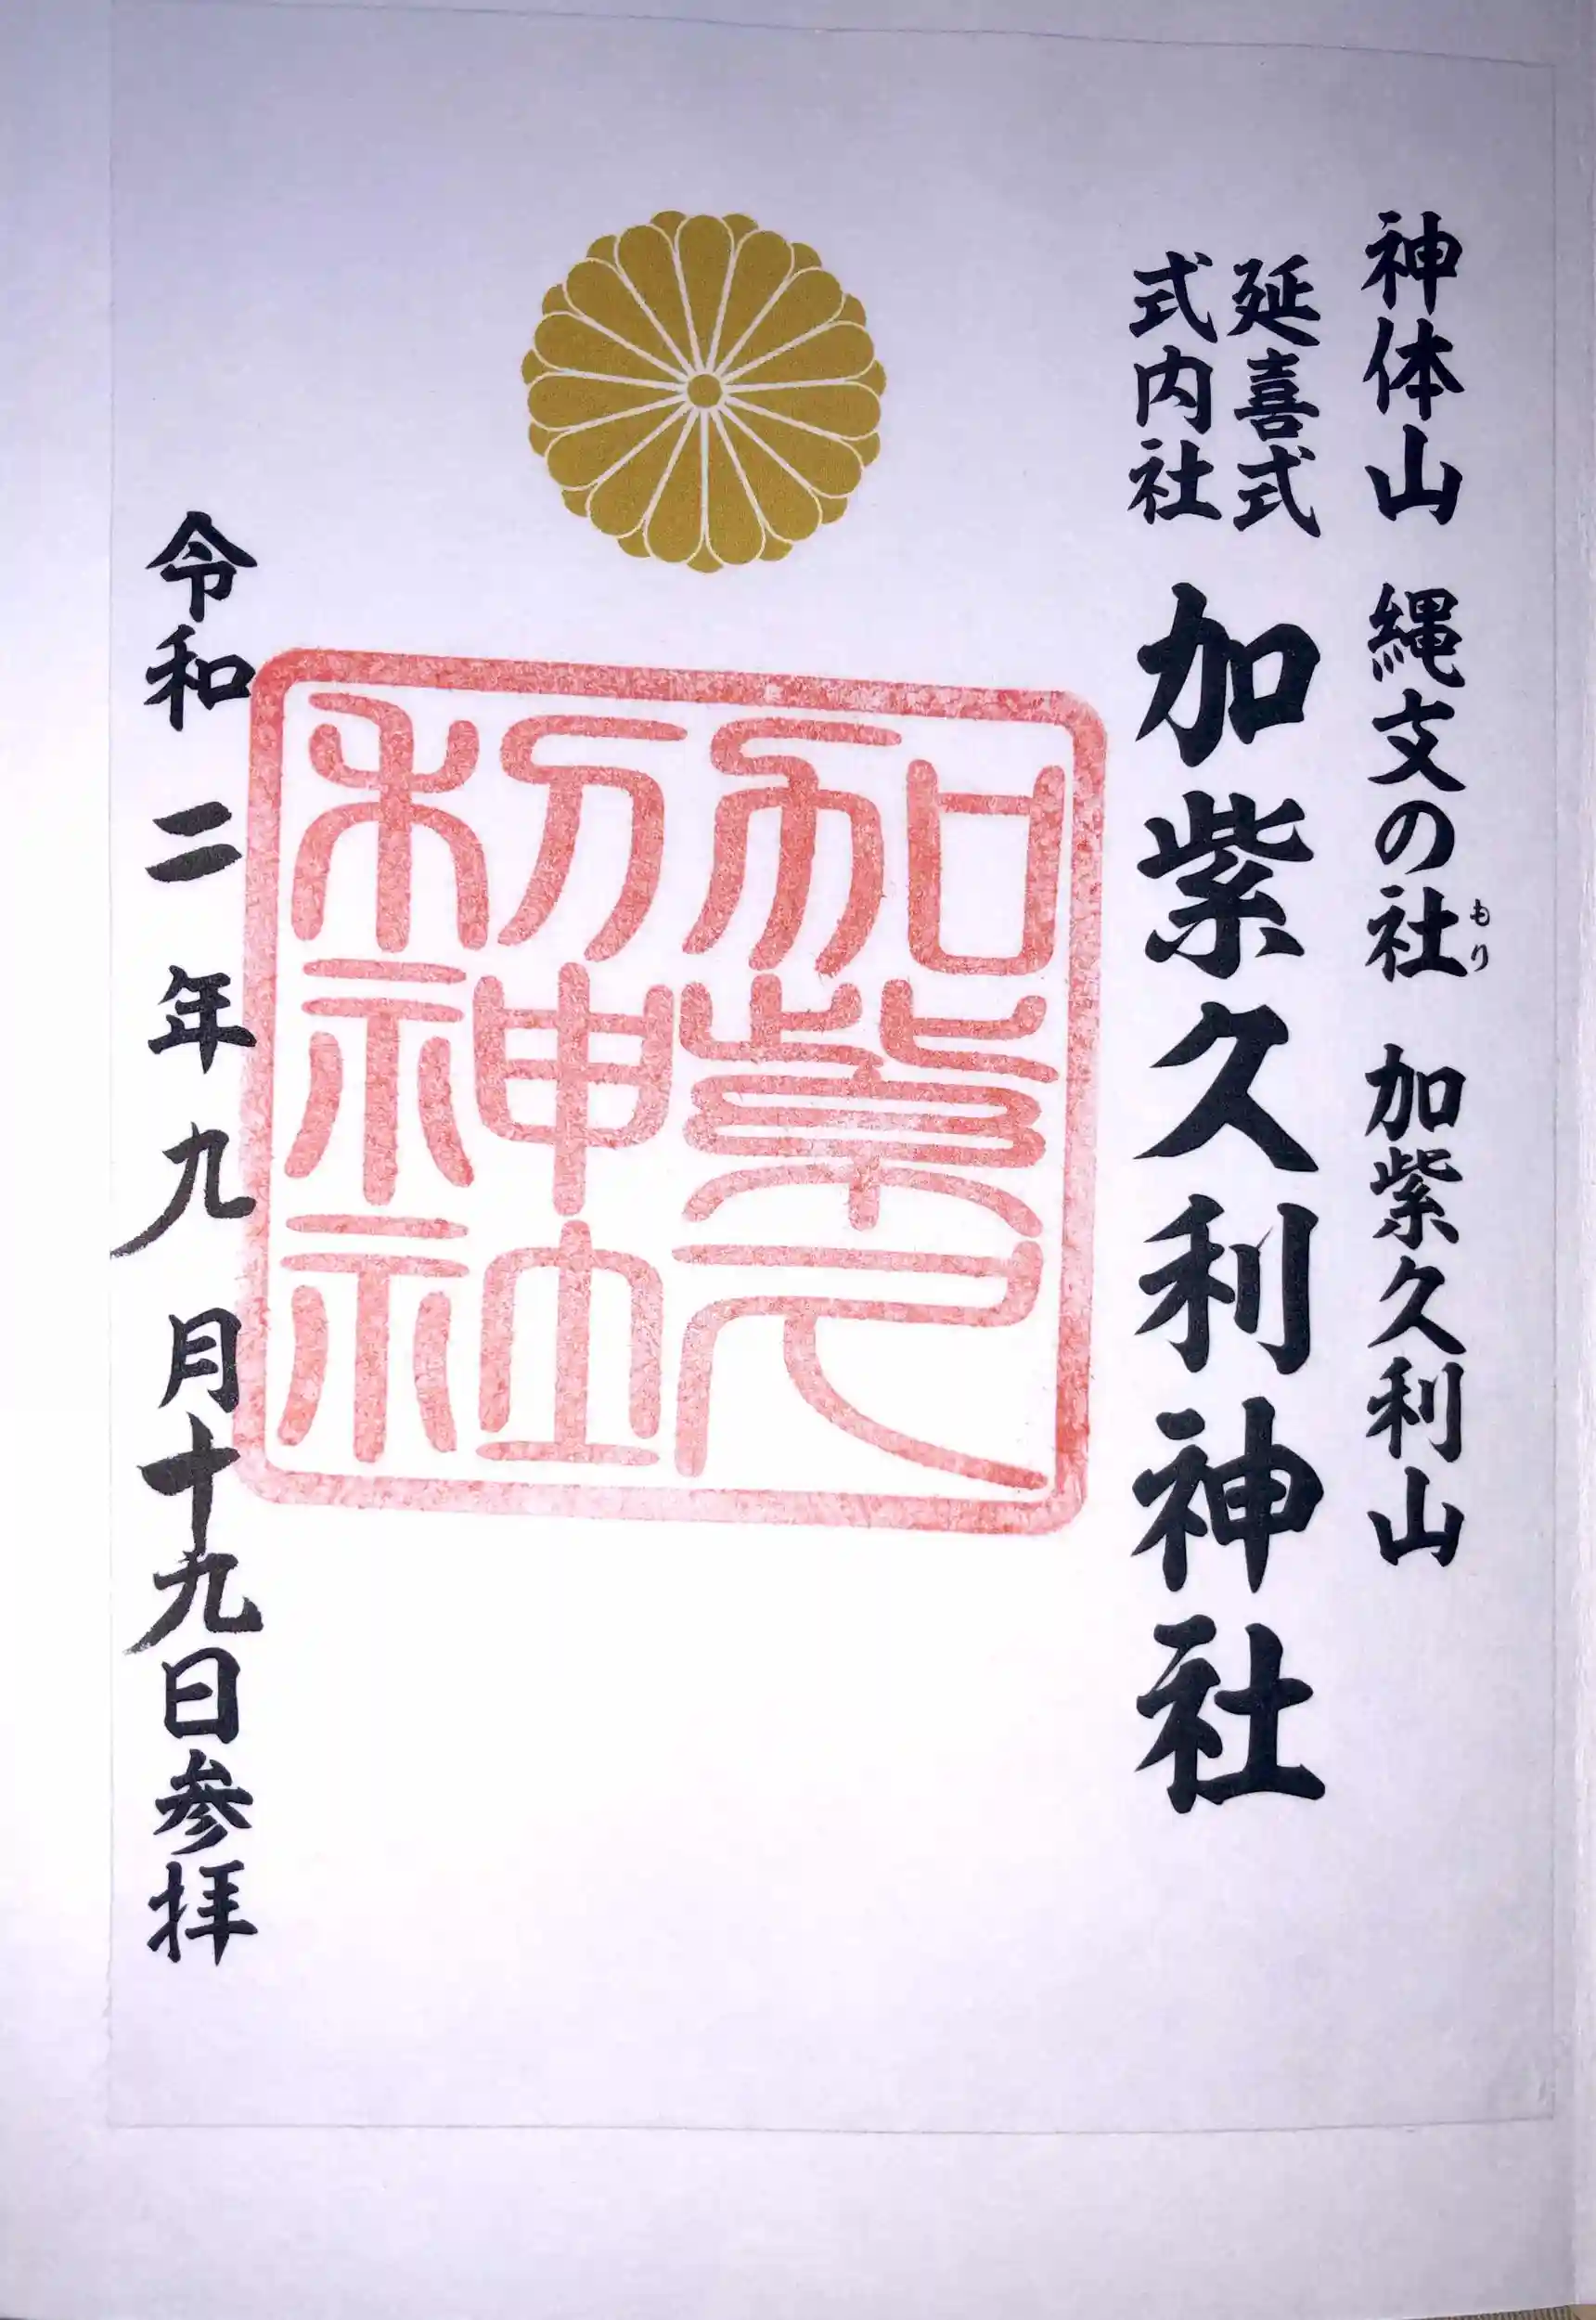 神体山 縄文の社 加紫久利山
もり
延喜式
式内社
加紫久利神社
加紫久
利神社
令和二年九月十九日参拝